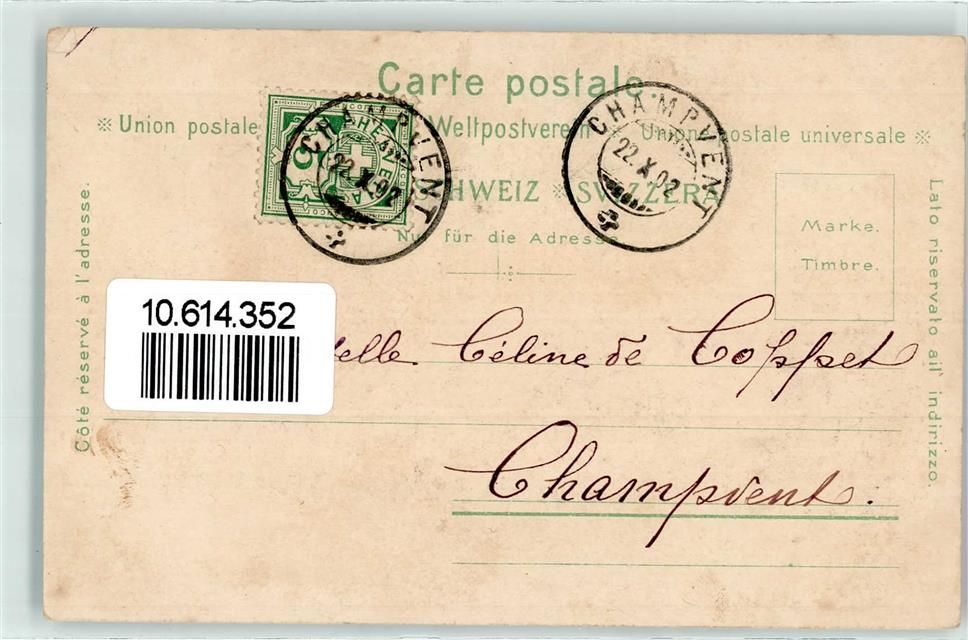 Carte postale.
※ Union postale Weltpostverein ※ Union postale universale ※
SCHWEIZ ※ SVIZZERA
Nur für die Adresse
CHAMPVENT
22.X.02
CHAMPVENT
22.X.02
HELVETIA
5
Marke.
Timbre.
Côté réservé à l'adresse.
Lato riservato all' indirizzo.
10.614.352
elle Céline de Coppet
Champvent.